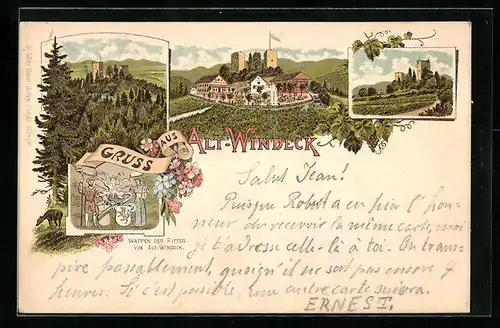 GRUSS AUS
ALT-WINDECK
WAPPEN DER RITTER
VON ALT-WINDECK.
Salut Jean!
Puisque Robert a eu hier l'hon-
neur de recevoir la même carte, moi
je t'adresse celle-là à toi. On trans-
pire passablement, quoiqu'il ne soit pas encore 7
heures. Si c'est possible, une autre carte suivra.
ERNEST.